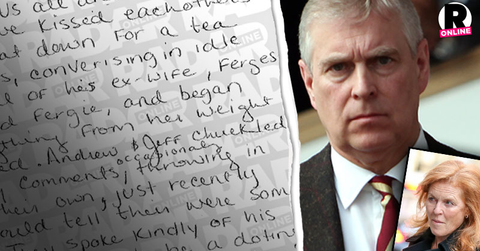 us all a
ve kissed eachothers
at down for a tea
si converising in idle
l of his ex-wife, Ferges
d Fergie, and began
thing from her weight
ed. Andrew & Jeff chuckled
occasionaly
comments, throwing in
heir own, just recently
ould tell their were som
They spoke kindly of his
be a doting
R
ONLINE
RADAR
ONLINE